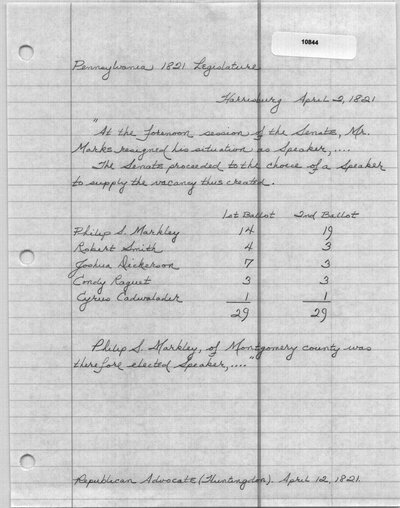 10844
Pennsylvania 1821 Legislature
Harrisburg April 2, 1821
"At the forenoon session of the Senate, Mr.
Marks resigned his situation as Speaker,....
The Senate proceeded to the choice of a Speaker
to supply the vacancy thus created.
1st Ballot 2nd Ballot
Philip S. Markley 14 19
Robert Smith 4 3
Joshua Dickerson 7 3
Condy Raguet 3 3
Cyrus Cadwalader 1 1
29 29
Philip S. Markley, of Montgomery county was
therefore elected Speaker,...."
Republican Advocate (Huntingdon). April 12, 1821.